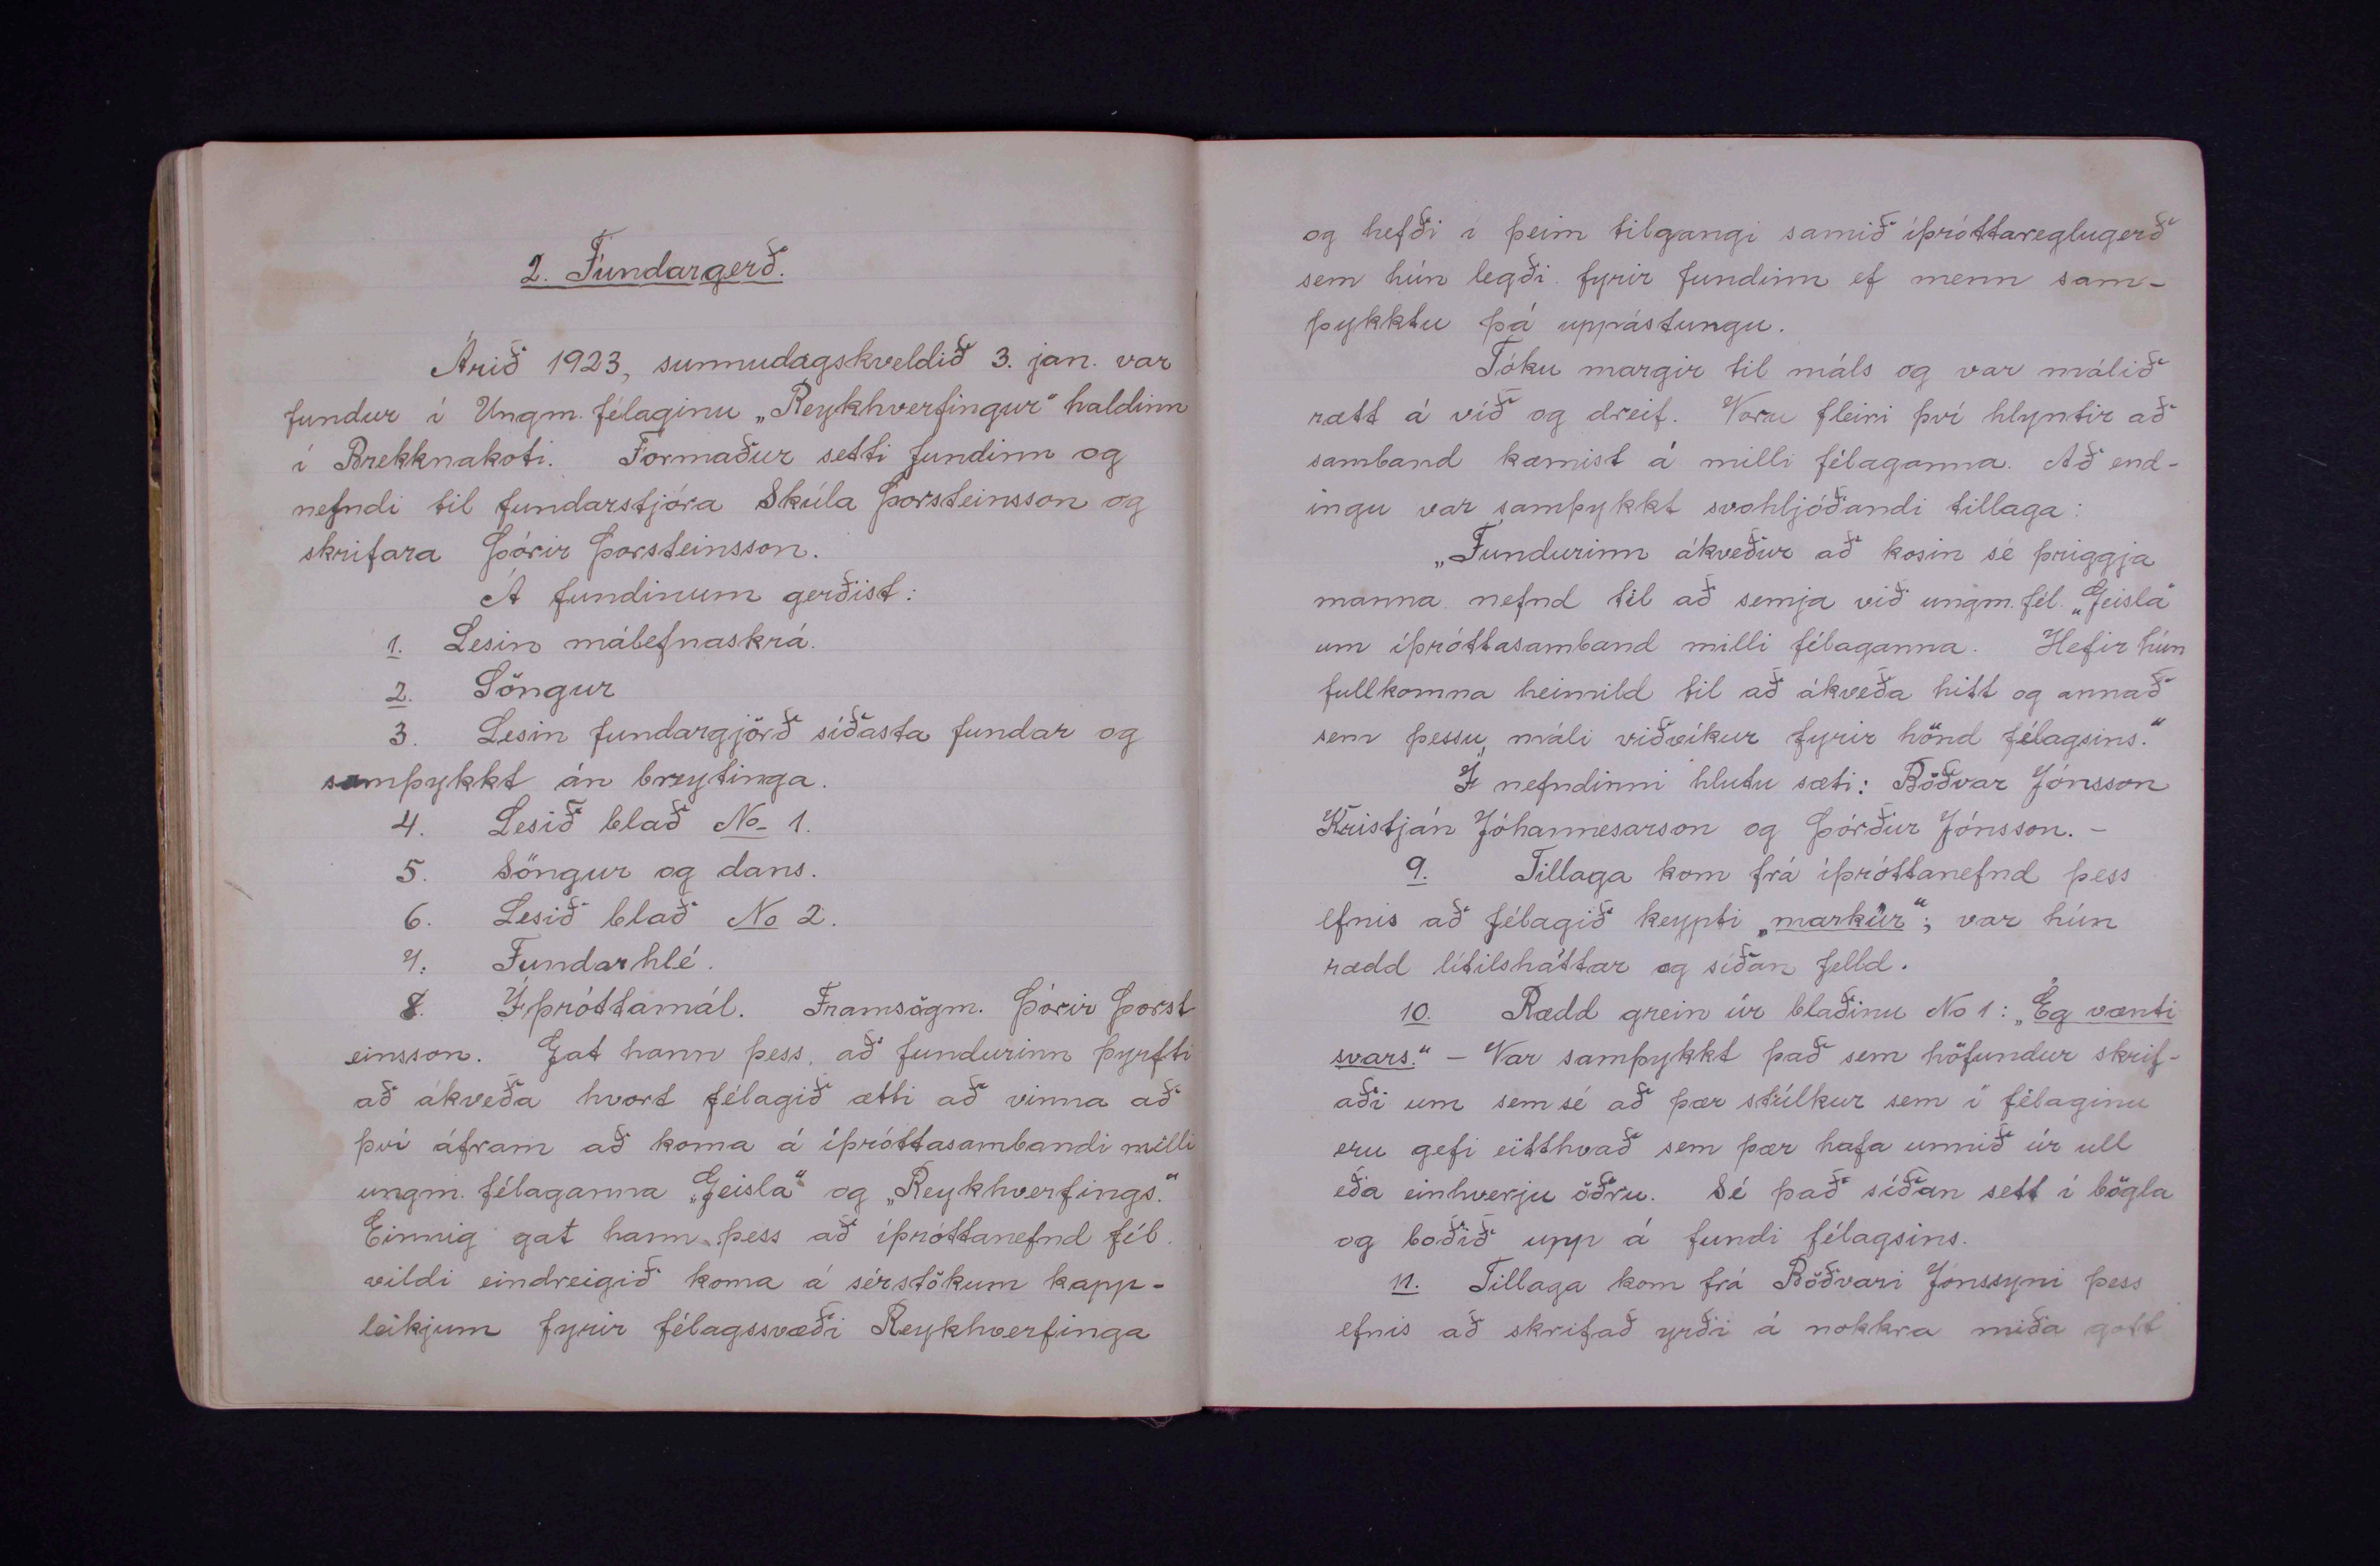 2. Fundargerð.
Árið 1923, sunnudagskveldið 3. jan. var
fundur í Ungm. félaginu „Reykhverfingur" haldinn
í Brekknakoti. Formaður setti fundinn og
nefndi til fundarstjóra Skúla Þorsteinsson og
skrifara Þórir Þorsteinsson.
Á fundinum gerðist:
1. Lesin málefnaskrá.
2. Söngur
3. Lesin fundargjörð síðasta fundar og
samþykkt án breytinga.
4. Lesið blað No 1.
5. Söngur og dans.
6. Lesið blað No 2.
7. Fundarhlé.
8. Íþróttamál. Framsögm. Þórir Þorst
einsson. Gat hann þess, að fundurinn þyrfti
að ákveða hvort félagið ætti að vinna að
því áfram að koma á íþróttasambandi milli
ungm. félaganna „Geisla" og „Reykhverfings."
Einnig gat hann þess að íþróttanefnd fél.
vildi eindreigið koma á sérstökum kapp-
leikjum fyrir félagssvæði Reykhverfinga
og hefði í þeim tilgangi samið íþróttareglugerð
sem hún legði fyrir fundinn ef menn sam-
þykktu þá uppástungu.
Tóku margir til máls og var málið
rætt á víð og dreif. Voru fleiri því hlyntir að
samband kæmist á milli félaganna. Að end-
ingu var samþykkt svohljóðandi tillaga:
„Fundurinn ákveður að kosin sé þriggja
manna nefnd til að semja við ungm. fél. „Geisla"
um íþróttasamband milli félaganna. Hefir hún
fullkomna heimild til að ákveða hitt og annað
sem þessu máli viðvíkur fyrir hönd félagsins."
Í nefndinni hlutu sæti: Böðvar Jónsson
Kristján Jóhannesarson og Þórður Jónsson. -
9. Tillaga kom frá íþróttanefnd þess
efnis að félagið keypti „markúr"; var hún
rædd lítilsháttar og síðan felld.
10. Rædd grein úr blaðinu No 1: „Ég vænti
svars." - Var samþykkt það sem höfundur skrif-
aði um sem sé að þær stúlkur sem í félaginu
eru gefi eitthvað sem þær hafa unnið úr ull
eða einhverju öðru. Sé það síðan sett í bögla
og boðið upp á fundi félagsins.
11. Tillaga kom frá Böðvari Jónssyni þess
efnis að skrifað yrði á nokkra miða gott